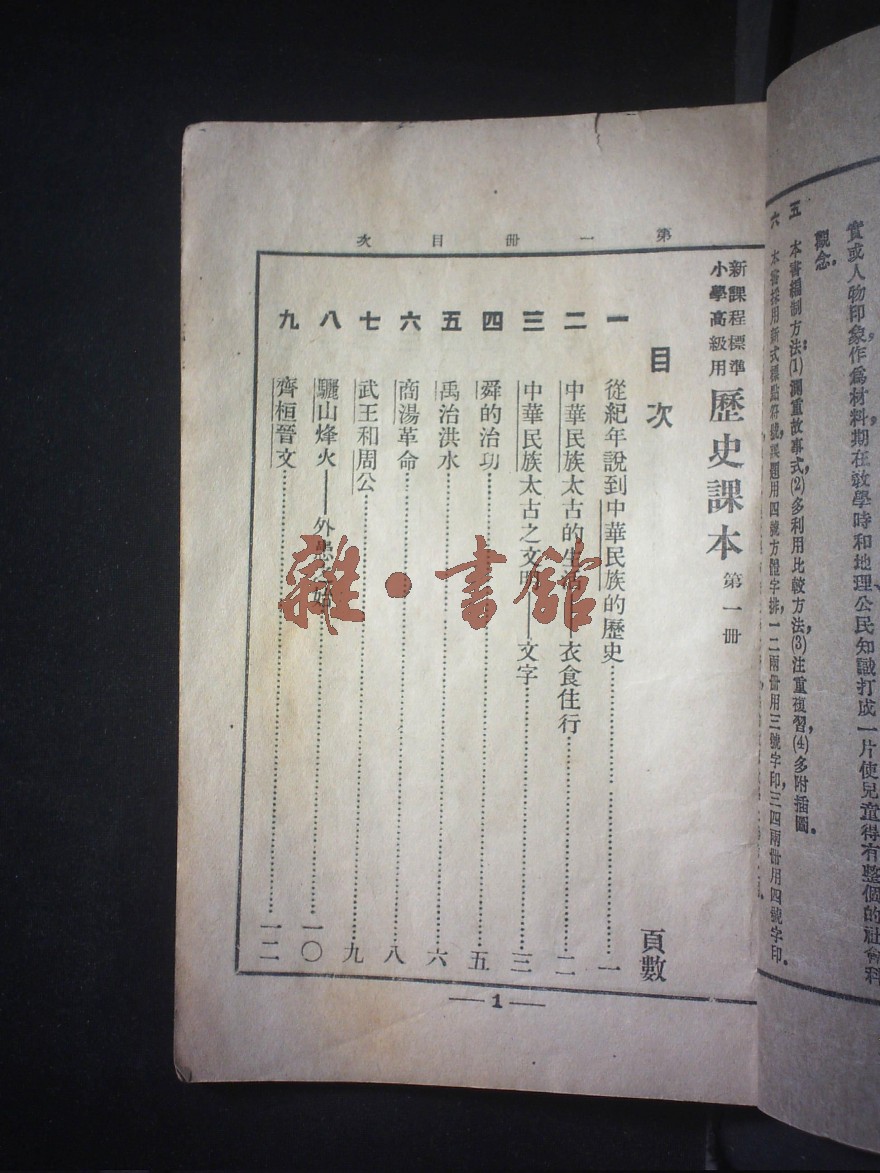 實或人物印象作爲材料，期在教學時和地理公民知識打成一片，使兒童得有整個的社會科
觀念。
五　本書編制方法：(1)測重故事式，(2)多利用比較方法，(3)注重複習，(4)多附插圖。
六　本書採用新式標點符號，課題用四號方體字排，一二兩冊用三號字印，三四兩冊用四號字印。
第一冊目次
新課程標準
小學高級用
歷史課本 第一冊
目次 頁數
一 從紀年說到中華民族的歷史……一
二 中華民族太古的生活——衣食住行……二
三 中華民族太古之文明——文字……三
四 舜的治功……五
五 禹治洪水……六
六 商湯革命……八
七 武王和周公……九
八 驪山烽火——外患……一〇
九 齊桓晉文……一二
— 1 —
雜·書館